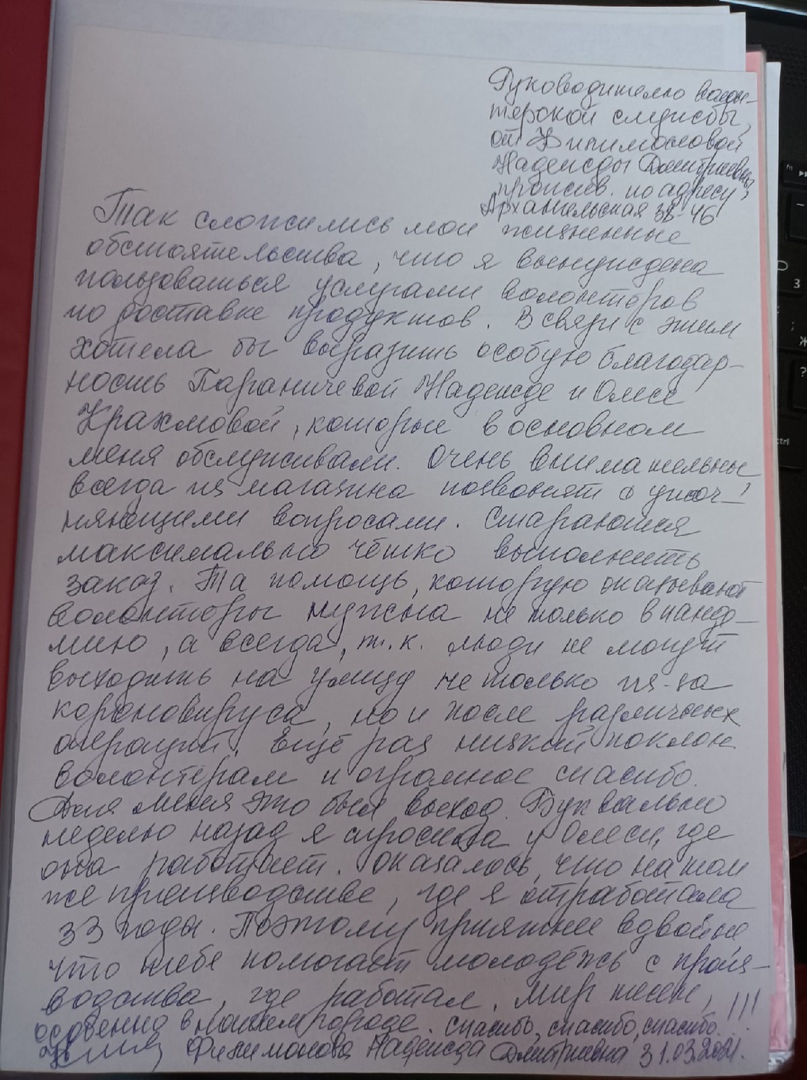 Руководителю волон-
терской службы,
от Филимоновой
Надежды Дмитриевны
прожив. по адресу,
Архангельская 38-46
Так сложились мои жизненные
обстоятельства, что я вынуждена
пользоваться услугами волонтёров
по доставке продуктов. В связи с этим
хотела бы выразить особую благодар-
ность Параничевой Надежде и Олесе
которые в основном
меня обслуживали. Очень внимательны
всегда из магазина позвонят с уточ-
няющими вопросами. Стараются
максимально чётко выполнить
заказ. Та помощь, которую оказывают
волонтёры нужна не только в панде-
мию, а всегда, т.к. люди не могут
выходить на улицу не только из-за
короновируса, но и после различных
операций. Ещё раз низкий поклон
волонтёрам и огромное спасибо.
Для меня это был выход. Буквально
неделю назад я спросила у Олеси, где
она работает. Оказалось, что на том
же производстве, где я отработала
33 годы. Поэтому приятнее вдвойне
что тебе помогает молодёжь с произ-
водства, где работал. Мир тесен, !!!
особенно в нашем городе. Спасибо, спасибо, спасибо.
Филимонова Надежда Дмитриевна 31.03.2021.